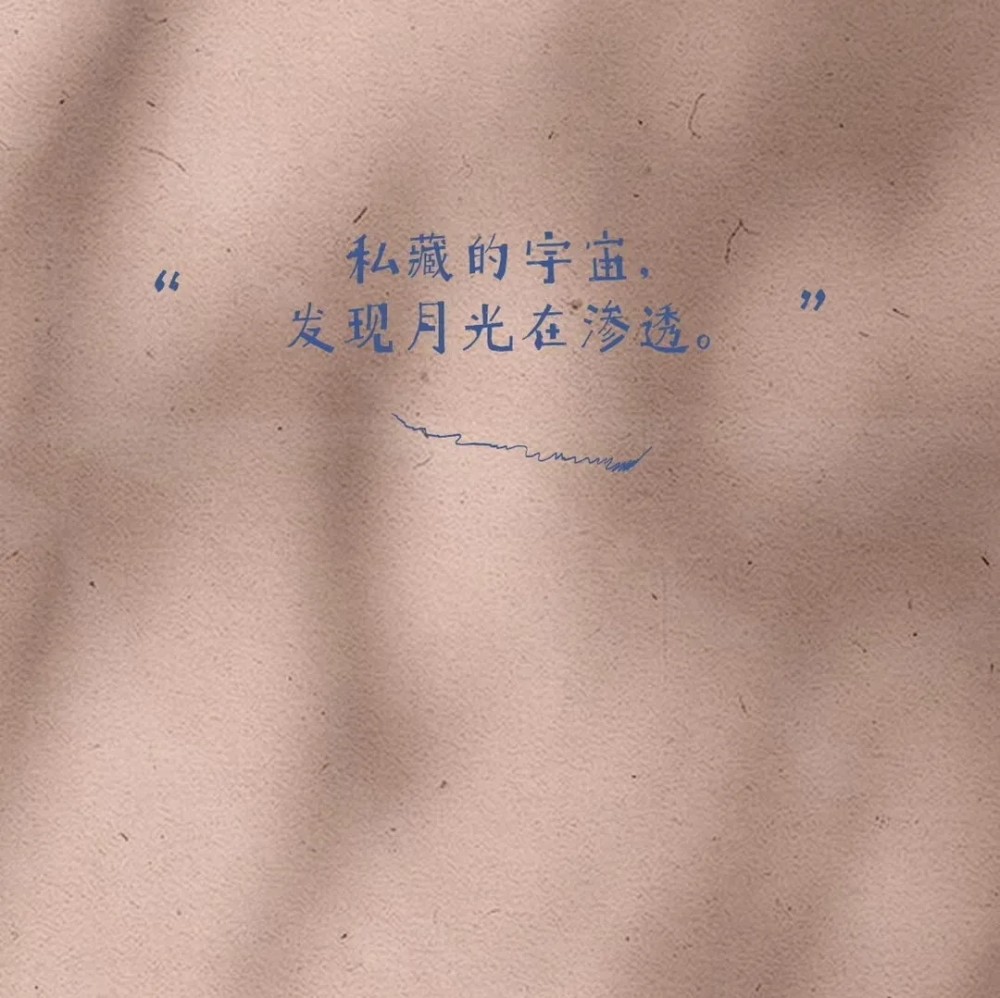 “私藏的宇宙，
发现月光在渗透。”